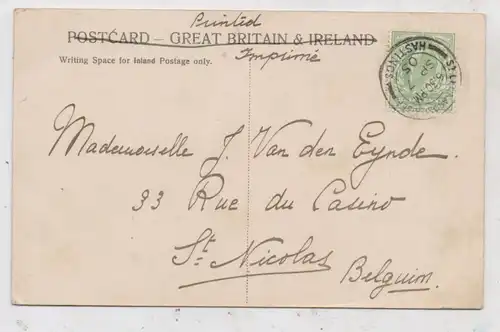 Printed
POSTCARD – GREAT BRITAIN & IRELAND
Imprimé
Writing Space for Inland Postage only.
HASTINGS
Mademoiselle J. Van den Eynde.
33 Rue du Casino
St. Nicolas
Belguim.